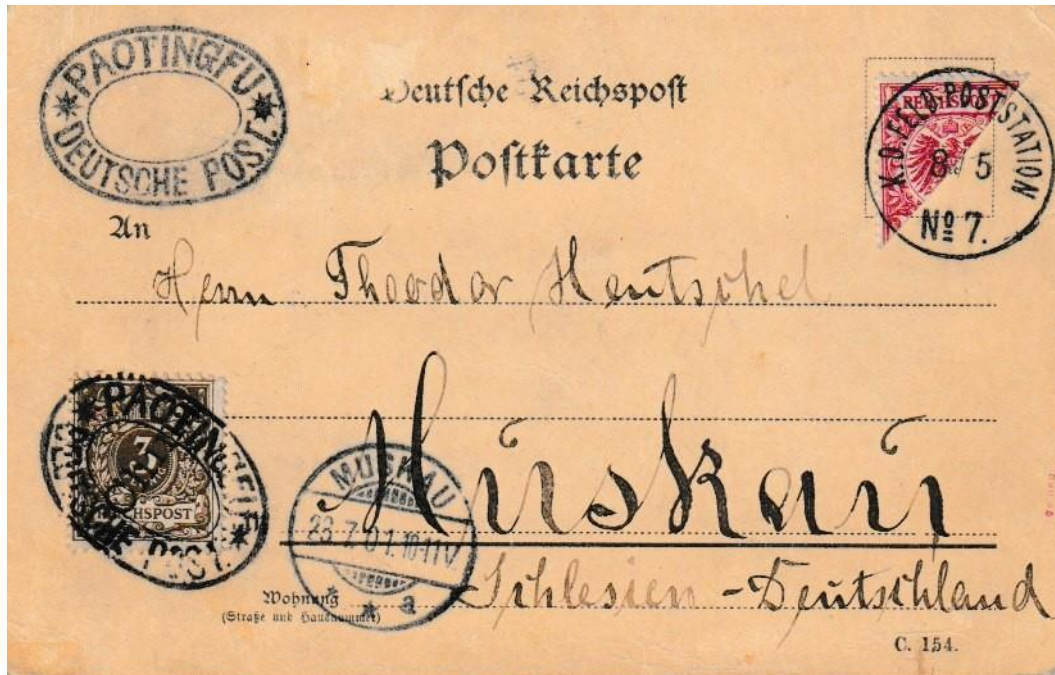 PAOTINGFU
DEUTSCHE POST.
Deutsche Reichspost
Postkarte
REICHSPOST
K.D. FELD-POSTSTATION
8/5
No 7.
An
Herrn Theodor Hentschel
PAOTINGFU
DEUTSCHE POST.
3
REICHSPOST
MUSKAU
23.7.01.10-11V
* * a
Muskau
Schlesien - Deutschland
Wohnung
(Straße und Hausnummer)
C. 154.